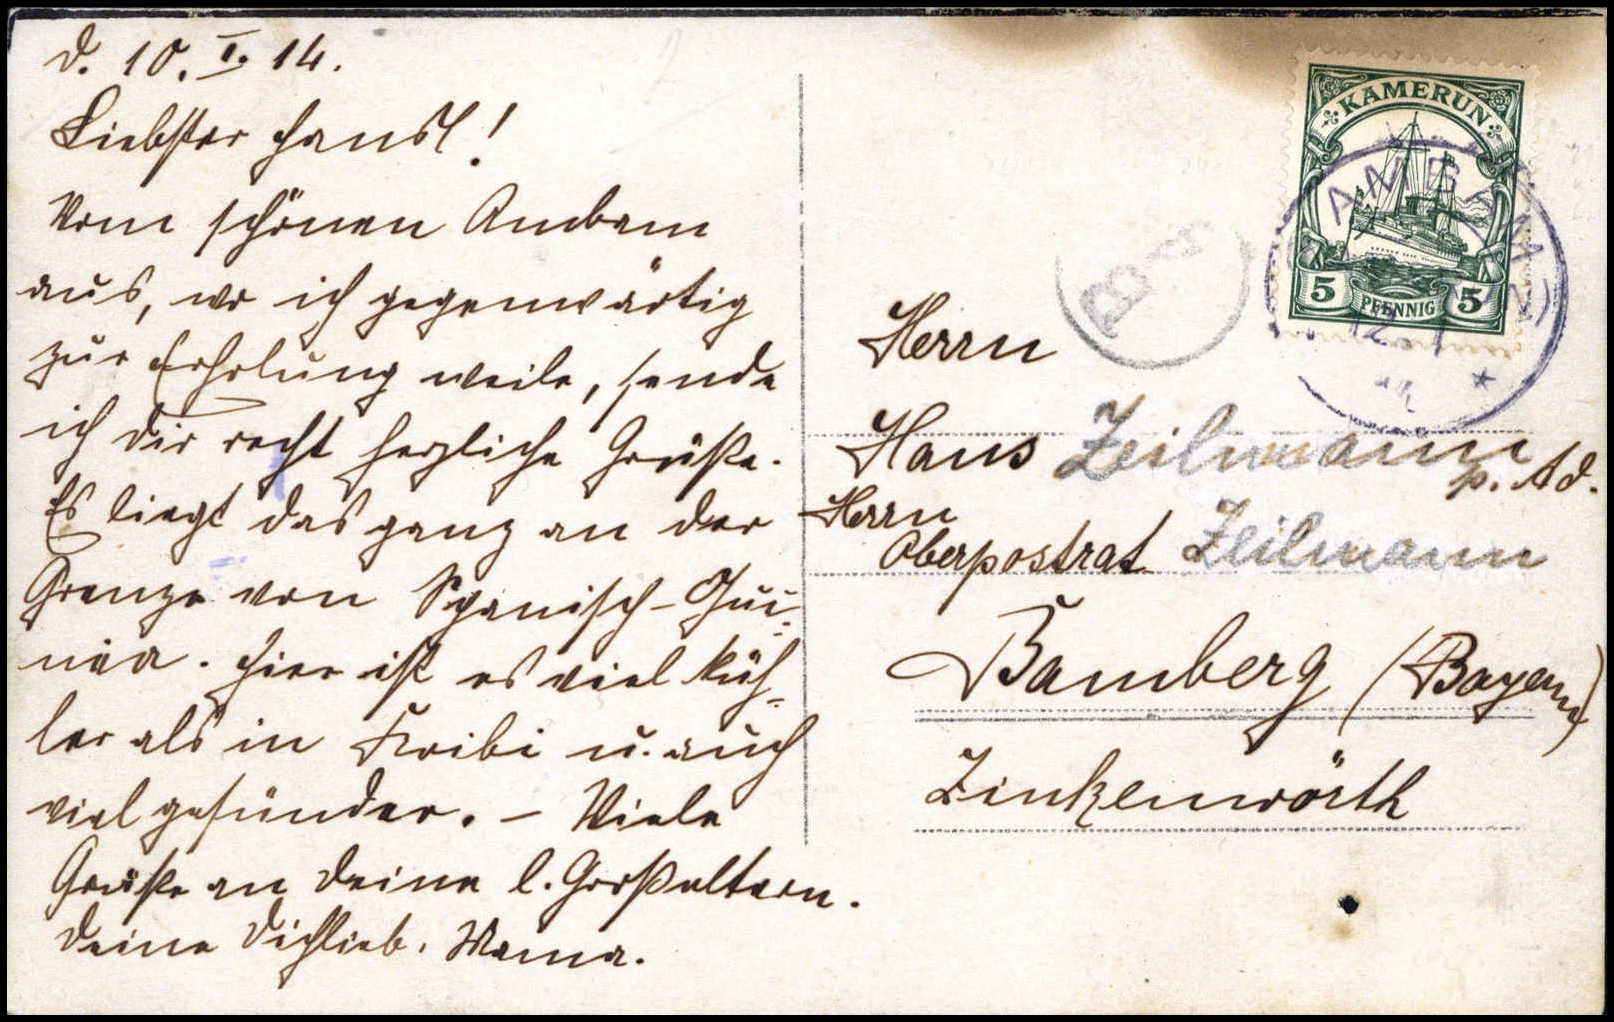 d. 10. I. 14.
Liebster Hansl!
Vom schönen Ambam
aus, wo ich gegenwärtig
zur Erholung weile, sende
ich Dir recht herzliche Grüße.
Es liegt das ganz an der
Grenze von Spanisch-Gui-
nea. Hier ist es viel küh-
ler als in Kribi u. auch
viel gesünder. – Viele
Grüße an Deine l. Großeltern.
Deine Dichlieb. Mama.
KAMERUN
5 PFENNIG 5
AMBAM
Herrn
Hans Zeilmann
p. Ad.
Herrn
Oberpostrat Zeilmann
Bamberg (Bayern)
Zinkenwörth